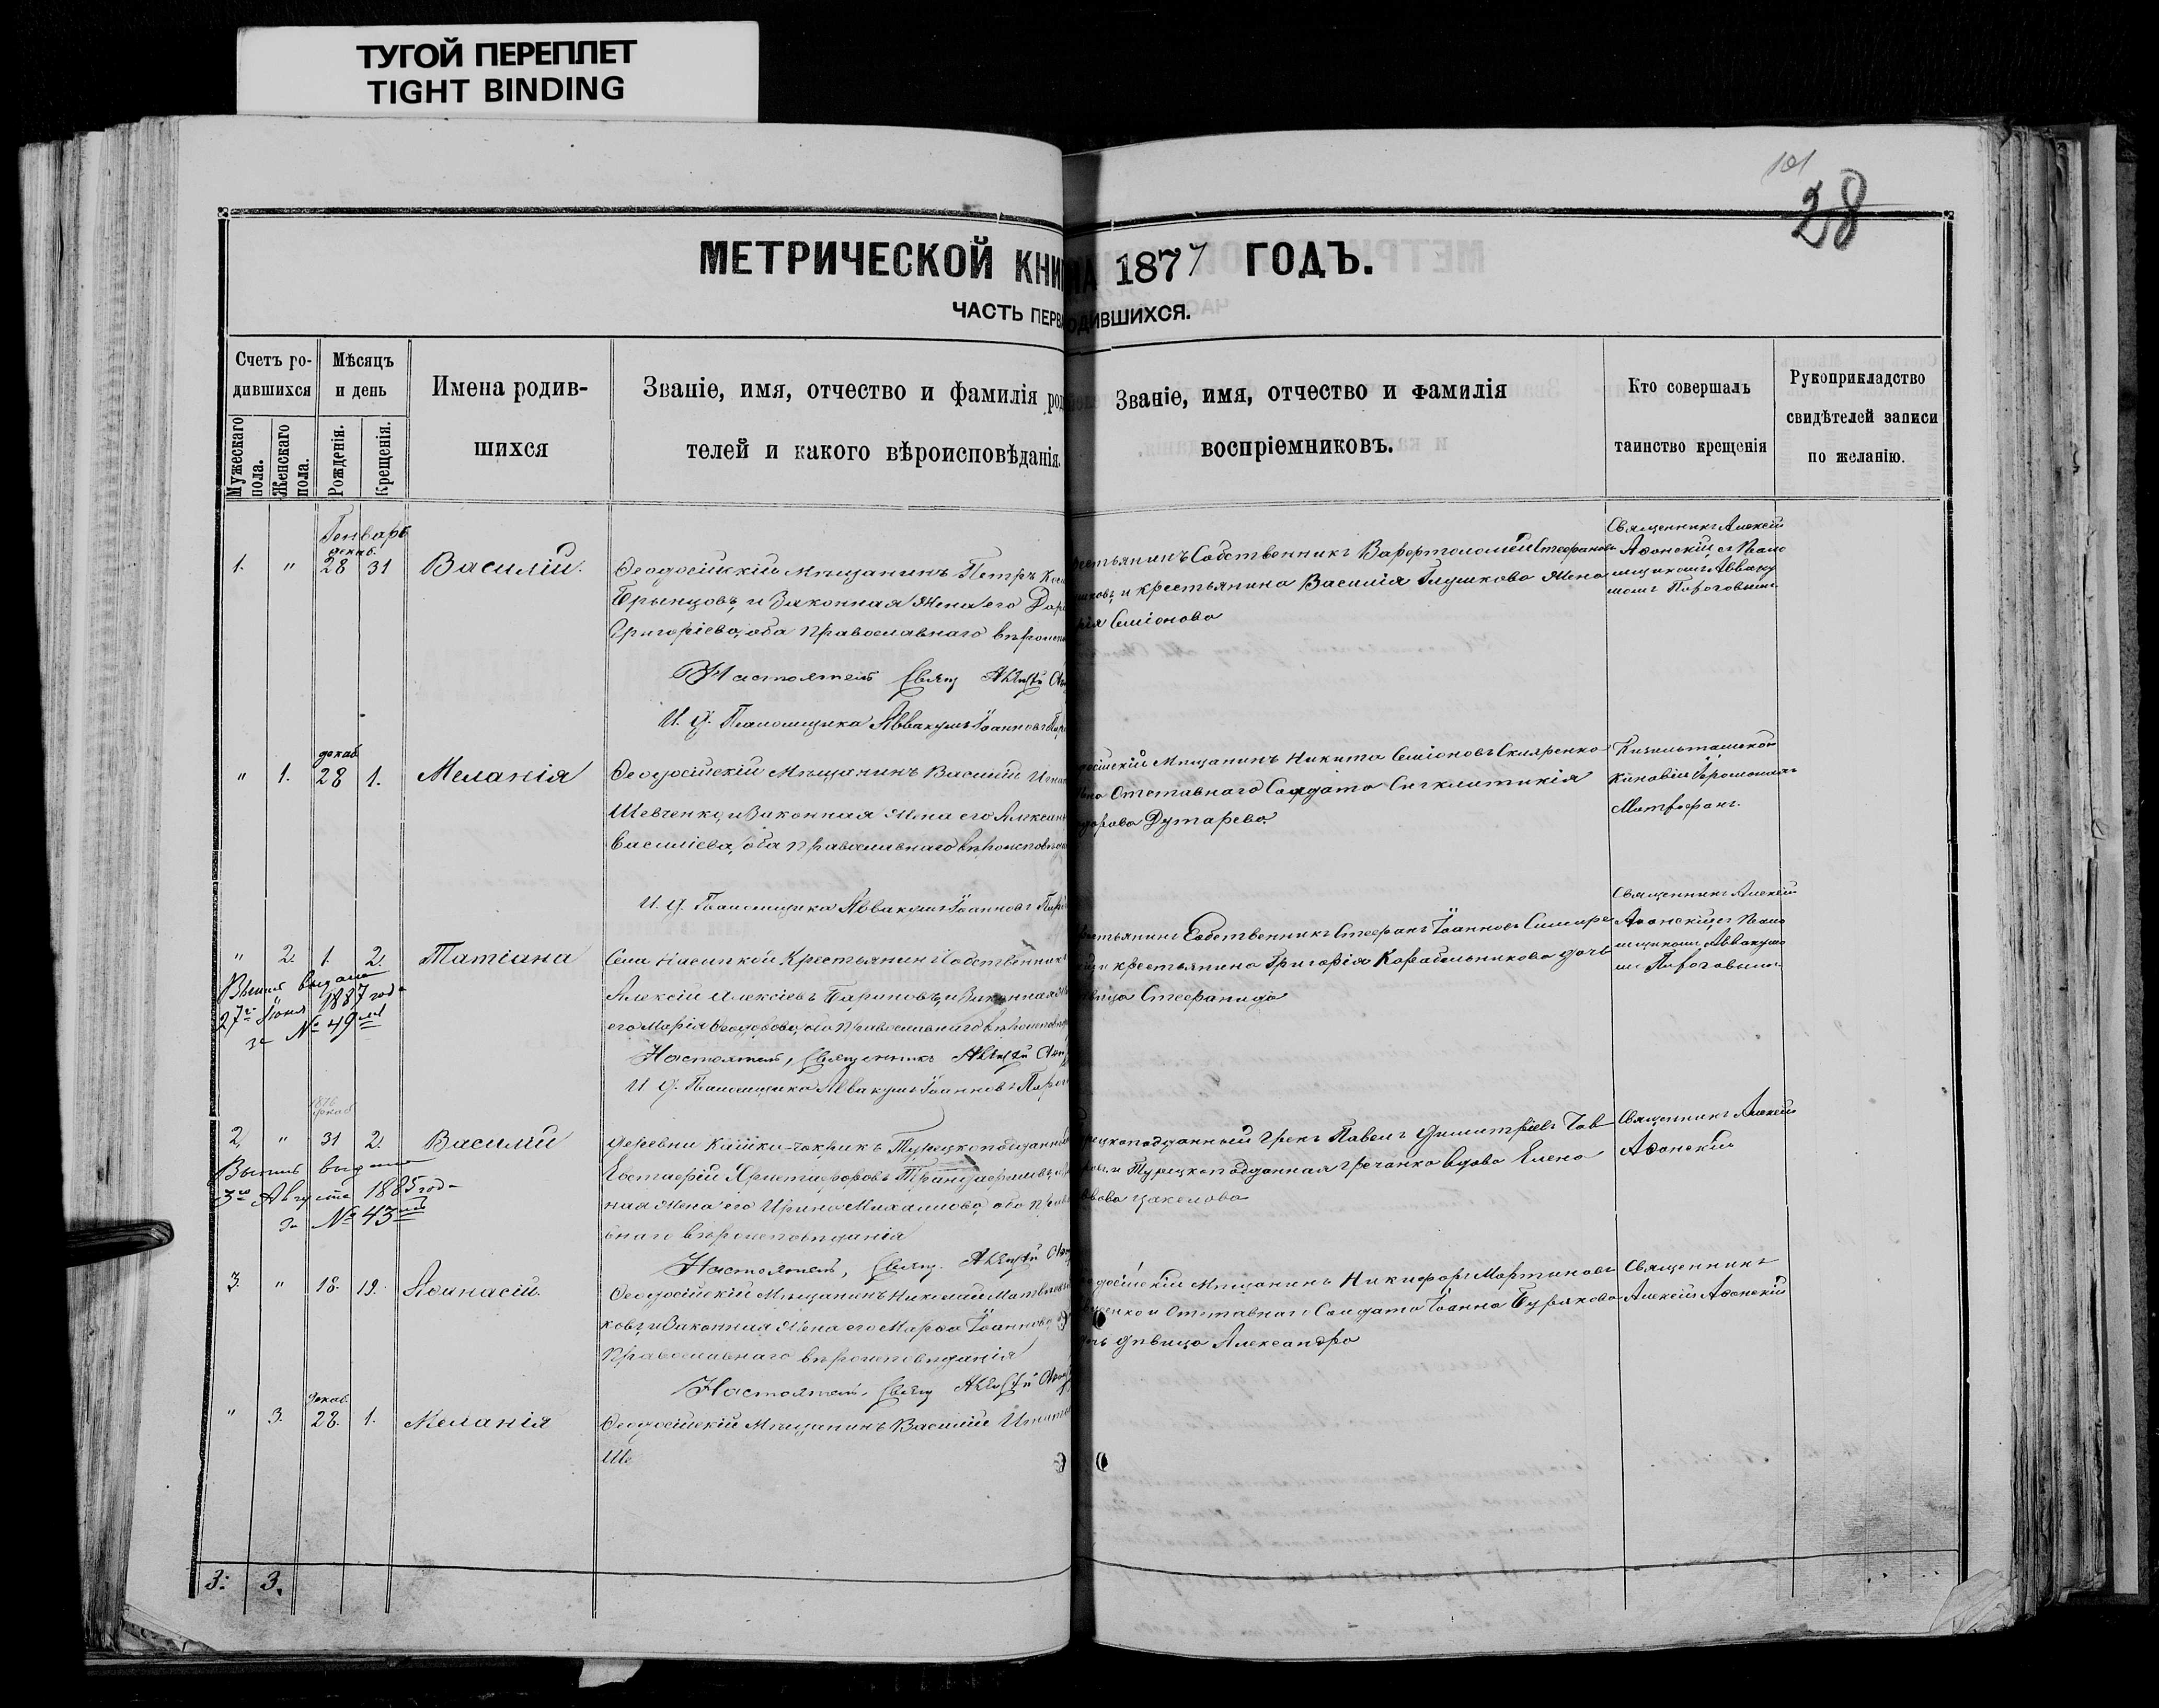 ТУГОЙ ПЕРЕПЛЕТ
TIGHT BINDING
101
28
МЕТРИЧЕСКОЙ КНИ
НА 1877 ГОДЪ.
ЧАСТЬ ПЕРВ
ОДИВШИХСЯ.
Счетъ ро-
дившихся
Мужескаго
пола.
Женскаго
пола.
Мѣсяцъ
и день
Рожденія.
Крещенія.
Имена родив-
шихся
Званіе, имя, отчество и фамилія род
телей и какого вѣроисповѣданія.
Званіе, имя, отчество и фамилія
воспріемниковъ.
Кто совершалъ
таинство крещенія
Рукоприкладство
свидѣтелей записи
по желанію.
Генварь
декаб.
1. " 28 31 Василій.
Ѳеодосійскій Мѣщанинъ Петръ
Брынцовъ, и Законная Жена его Дар
Григоріева, оба Православнаго вѣроисп
Настоятель Свящ Алексѣй
И. д. Псаломщика Аввакумъ Іоанновъ
естьянинъ Собственникъ Варфоломей Стефанов
и крестьянина Василія Глушкова Жена
рія Симіонова
Священникъ Алексій
Аѳонскій, съ Псало
мщикомъ Авваку
момъ Пироговымъ
декаб
" 1. 28 1. Меланія
Ѳеодосійскій Мѣщанинъ Василій Игнат
Шевченко, и Законная Жена его Алексан
Василіева, оба Православнаго вѣроисповѣд
И. д. Псаломщика Аввакумъ Іоанновъ Пиро
досійскій Мѣщанинъ Никита Симіоновъ Скляренко
Отставнаго Солдата Сигклитикія
дорова Дутарева
Кизильташской
Киновіи Іеромонахъ
Митрофанъ.
" 2. 1. 2. Татіана
Выпись выдана
27го Іюня 1887 года
за № 49мъ
Села Насипкой Крестьянинъ Собственникъ
Алексій Алексіевъ Бариновъ, и Законная
его Марія Ѳеодорова, оба Православнаго вѣроисповѣд
Настоятель, Священникъ Алексѣй
И. д. Псаломщика Аввакумъ Іоанновъ Пиро
стьянинъ Собственникъ Стефанъ Іоанновъ
и крестьянина Григорія Корабельникова дочь
вица Стефанида
Священникъ Алексій
Аѳонскій съ Псало
мщикомъ Аввакумо
мъ Пироговымъ
1876
декаб
2. " 31 2. Василій
Выпись выдана
3го Августа 1885 года
за № 43мъ
деревни Кошка-Чокракъ Турецкоподданный
Евстафій Христофоровъ
ная Жена его Ирина Михаилова, оба Прав
внаго вѣроисповѣданія
Настоятель, Свящ. Алексѣй
рецкоподданный Грекъ Павелъ Димитріевъ
и Турецкоподданная гречанка вдова Елена
Священникъ Алексій
Аѳонскій
3. " 18. 19. Аѳанасій.
Ѳеодосійскій Мѣщанинъ Николай Матвѣев
ковъ, и Законная Жена его Марѳа Іоаннова, об
Православнаго вѣроисповѣданія
Настоятель, Свящ Алексѣй
одосійскій Мѣщанинъ Никифоръ Мартиновъ
и Отставнаго Солдата Іоанна Бурякова
чь дѣвица Александра
Священникъ
Алексій Аѳонскій
декаб.
" 3. 28. 1. Меланія
Ѳеодосійскій Мѣщанинъ Василій Игнат
Ше
3: 3.